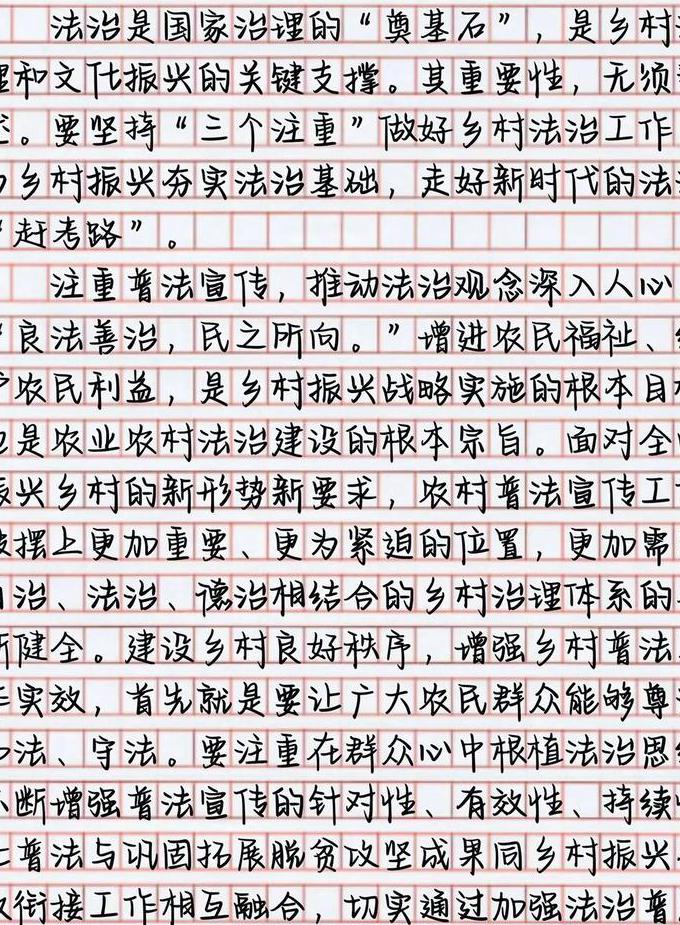 法治是国家治理的“奠基石”，是乡村
理和文化振兴的关键支撑。其重要性，无须
述。要坚持“三个注重”做好乡村法治工作
为乡村振兴夯实法治基础，走好新时代的法
“赶考路”。
注重普法宣传，推动法治观念深入人心
“良法善治，民之所向。”增进农民福祉、
护农民利益，是乡村振兴战略实施的根本目
也是农业农村法治建设的根本宗旨。面对全
振兴乡村的新形势新要求，农村普法宣传工
被摆上更加重要、更为紧迫的位置，更加需
自治、法治、德治相结合的乡村治理体系的
断健全。建设乡村良好秩序，增强乡村普法
作实效，首先就是要让广大农民群众能够尊
知法、守法。要注重在群众心中根植法治思
不断增强普法宣传的针对性、有效性、持续
让普法与巩固拓展脱贫攻坚成果同乡村振兴
效衔接工作相互融合，切实通过加强法治普